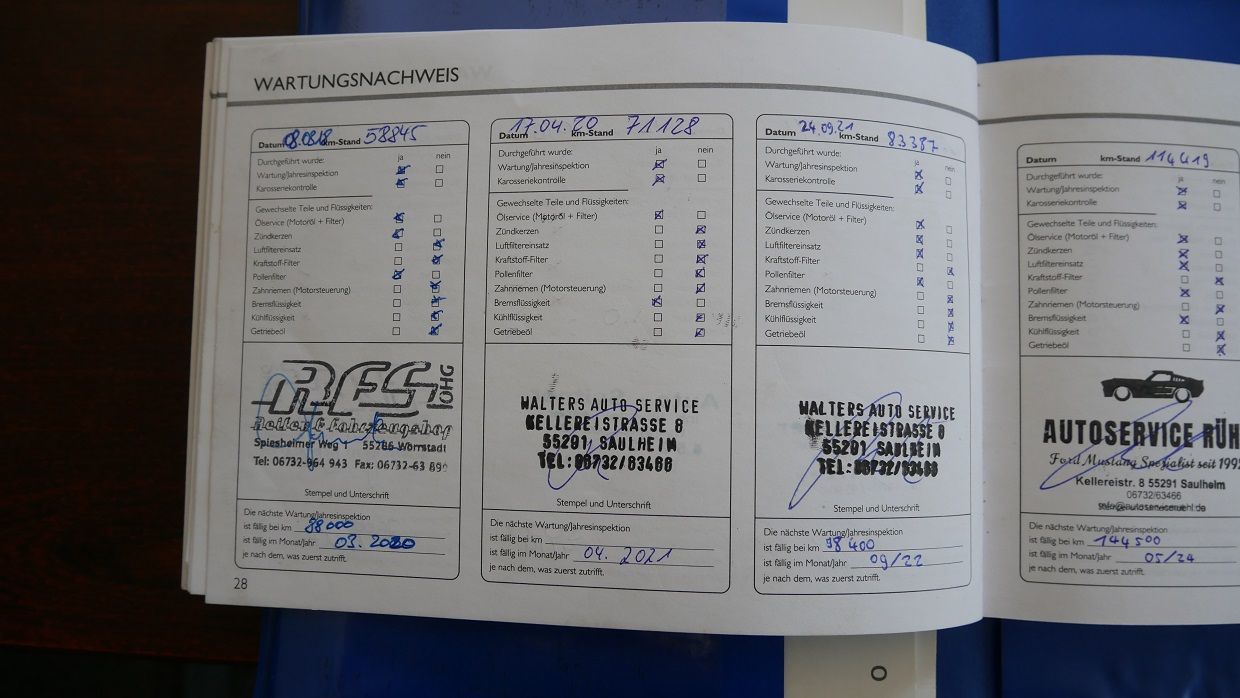 WARTUNGSNACHWEIS
Datum 08.08.18 km-Stand 58845
Durchgeführt wurde: ja nein
Wartung/Jahresinspektion
Karosseriekontrolle
Gewechselte Teile und Flüssigkeiten:
Ölservice (Motoröl + Filter)
Zündkerzen
Luftfiltereinsatz
Kraftstoff-Filter
Pollenfilter
Zahnriemen (Motorsteuerung)
Bremsflüssigkeit
Kühlflüssigkeit
Getriebeöl
RFS
OHG
Spiesheimer Weg 1 55286 Wörrstadt
Tel: 06732-964 943 Fax: 06732-63 89
Stempel und Unterschrift
Die nächste Wartung/Jahresinspektion
ist fällig bei km 88000
ist fällig im Monat/Jahr 03.2020
je nach dem, was zuerst zutrifft.
28
Datum 17.04.20 km-Stand 71128
Durchgeführt wurde: ja nein
Wartung/Jahresinspektion
Karosseriekontrolle
Gewechselte Teile und Flüssigkeiten:
Ölservice (Motoröl + Filter)
Zündkerzen
Luftfiltereinsatz
Kraftstoff-Filter
Pollenfilter
Zahnriemen (Motorsteuerung)
Bremsflüssigkeit
Kühlflüssigkeit
Getriebeöl
WALTERS AUTO SERVICE
KELLEREISTRASSE 8
55291 SAULHEIM
TEL:06732/63466
Stempel und Unterschrift
Die nächste Wartung/Jahresinspektion
ist fällig bei km
ist fällig im Monat/Jahr 04.2021
je nach dem, was zuerst zutrifft.
Datum 24.09.21 km-Stand 83387
Durchgeführt wurde: ja nein
Wartung/Jahresinspektion
Karosseriekontrolle
Gewechselte Teile und Flüssigkeiten:
Ölservice (Motoröl + Filter)
Zündkerzen
Luftfiltereinsatz
Kraftstoff-Filter
Pollenfilter
Zahnriemen (Motorsteuerung)
Bremsflüssigkeit
Kühlflüssigkeit
Getriebeöl
WALTERS AUTO SERVICE
KELLEREISTRASSE 8
55291 SAULHEIM
TEL:06732/63466
Stempel und Unterschrift
Die nächste Wartung/Jahresinspektion
ist fällig bei km 98400
ist fällig im Monat/Jahr 09/22
je nach dem, was zuerst zutrifft.
Datum km-Stand 114419
Durchgeführt wurde: ja nein
Wartung/Jahresinspektion
Karosseriekontrolle
Gewechselte Teile und Flüssigkeiten:
Ölservice (Motoröl + Filter)
Zündkerzen
Luftfiltereinsatz
Kraftstoff-Filter
Pollenfilter
Zahnriemen (Motorsteuerung)
Bremsflüssigkeit
Kühlflüssigkeit
Getriebeöl
AUTOSERVICE RÜH
Ford Mustang Spezialist seit 1992
Kellereistr. 8 55291 Saulheim
06732/63466
info@autoserviceruehl.de
Die nächste Wartung/Jahresinspektion
ist fällig bei km 144500
ist fällig im Monat/Jahr 05/24
je nach dem, was zuerst zutrifft.